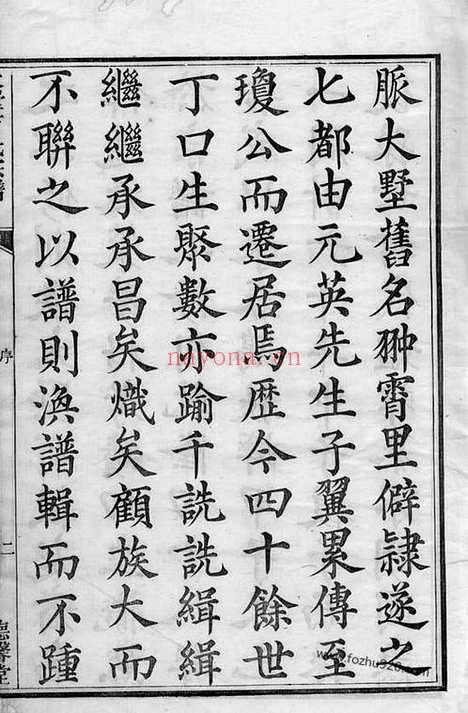 脈大墅舊名翀霄里僻隷遂之
七都由元英先生子翼累傳至
瓊公而遷居焉歷今四十餘世
丁口生聚數亦踰千詵詵緝緝
繼繼承承昌矣熾矣顧族大而
不聯之以譜則渙譜輯而不踵
序
二
nayona.cn
www.fozhu920.com